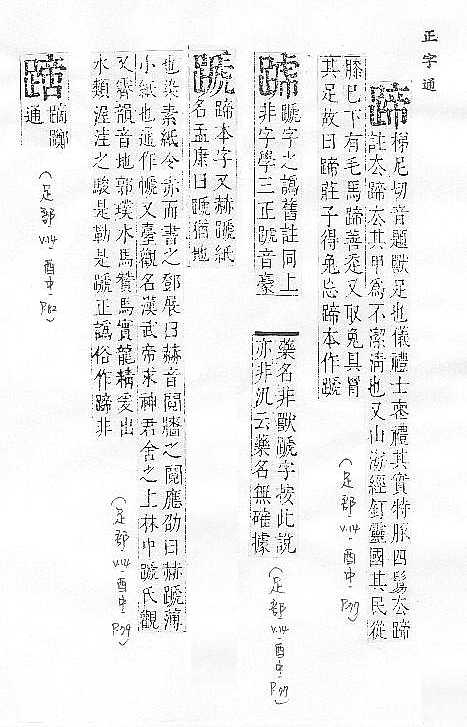 正字通
蹄
梯尼切音題獸足也儀禮士喪禮其實特豚四鬄去蹄
註去蹄去其甲爲不潔淸也又山海經釘靈國其民從
膝已下有毛馬蹄善走又取兔具罥
其足故曰蹄莊子得兔忘蹄本作蹏
(足部 v.14 - 酉中 - P.77)
蹏字之譌舊註同上
非字學三正蹏音臺
藥名非獸蹏字按此說
亦非汎云藥名無確據
(足部 v.14 - 酉中 - P.77)
蹏
蹄本字又赫蹏紙
名孟康曰蹏猶地
也染素紙令赤而書之鄧展曰赫音鬩牆之鬩應劭曰赫蹏薄
小紙也通作又臺觀名漢武帝求神君舍之上林中蹏氏觀
又霽韻音地郭璞水馬贊馬實龍精爰出
水類渥洼之駿是勒是蹏正譌俗作蹄非
(足部 v.14 - 酉中 - P.79)
通
(足部 v.14 - 酉中 - P.82)